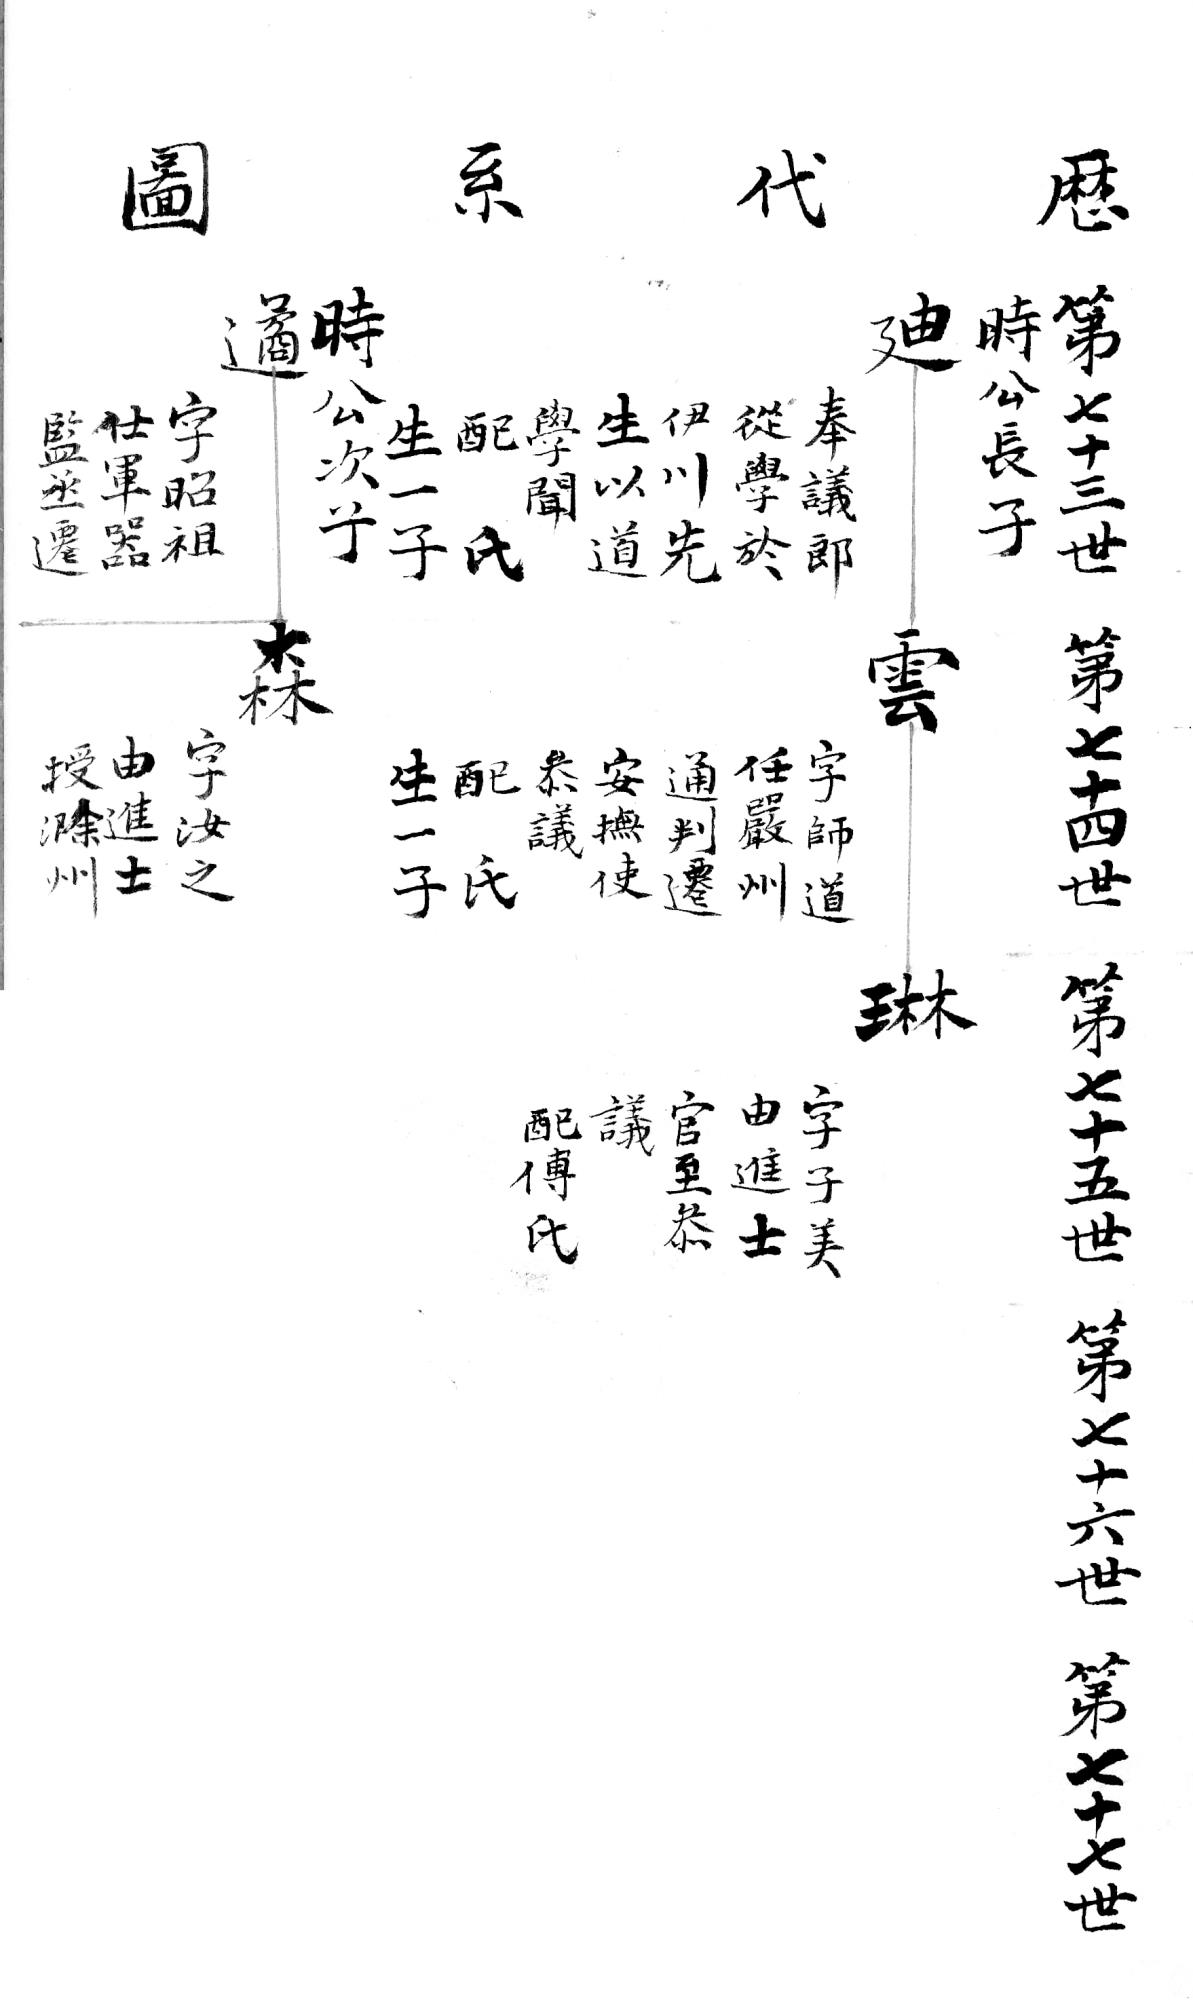 歷代系圖
第七十三世
第七十四世
第七十五世
第七十六世
第七十七世
時公長子
迪
奉議郎
從學於
伊川先
生以道
學聞
配 氏
生一子
雲
字師道
任嚴州
通判遷
安撫使
叅議
配 氏
生一子
琳
字子美
由進士
官至叅
議
配傅氏
時公次子
遹
字昭祖
仕軍器
監丞遷
森
字汝之
由進士
授滁州